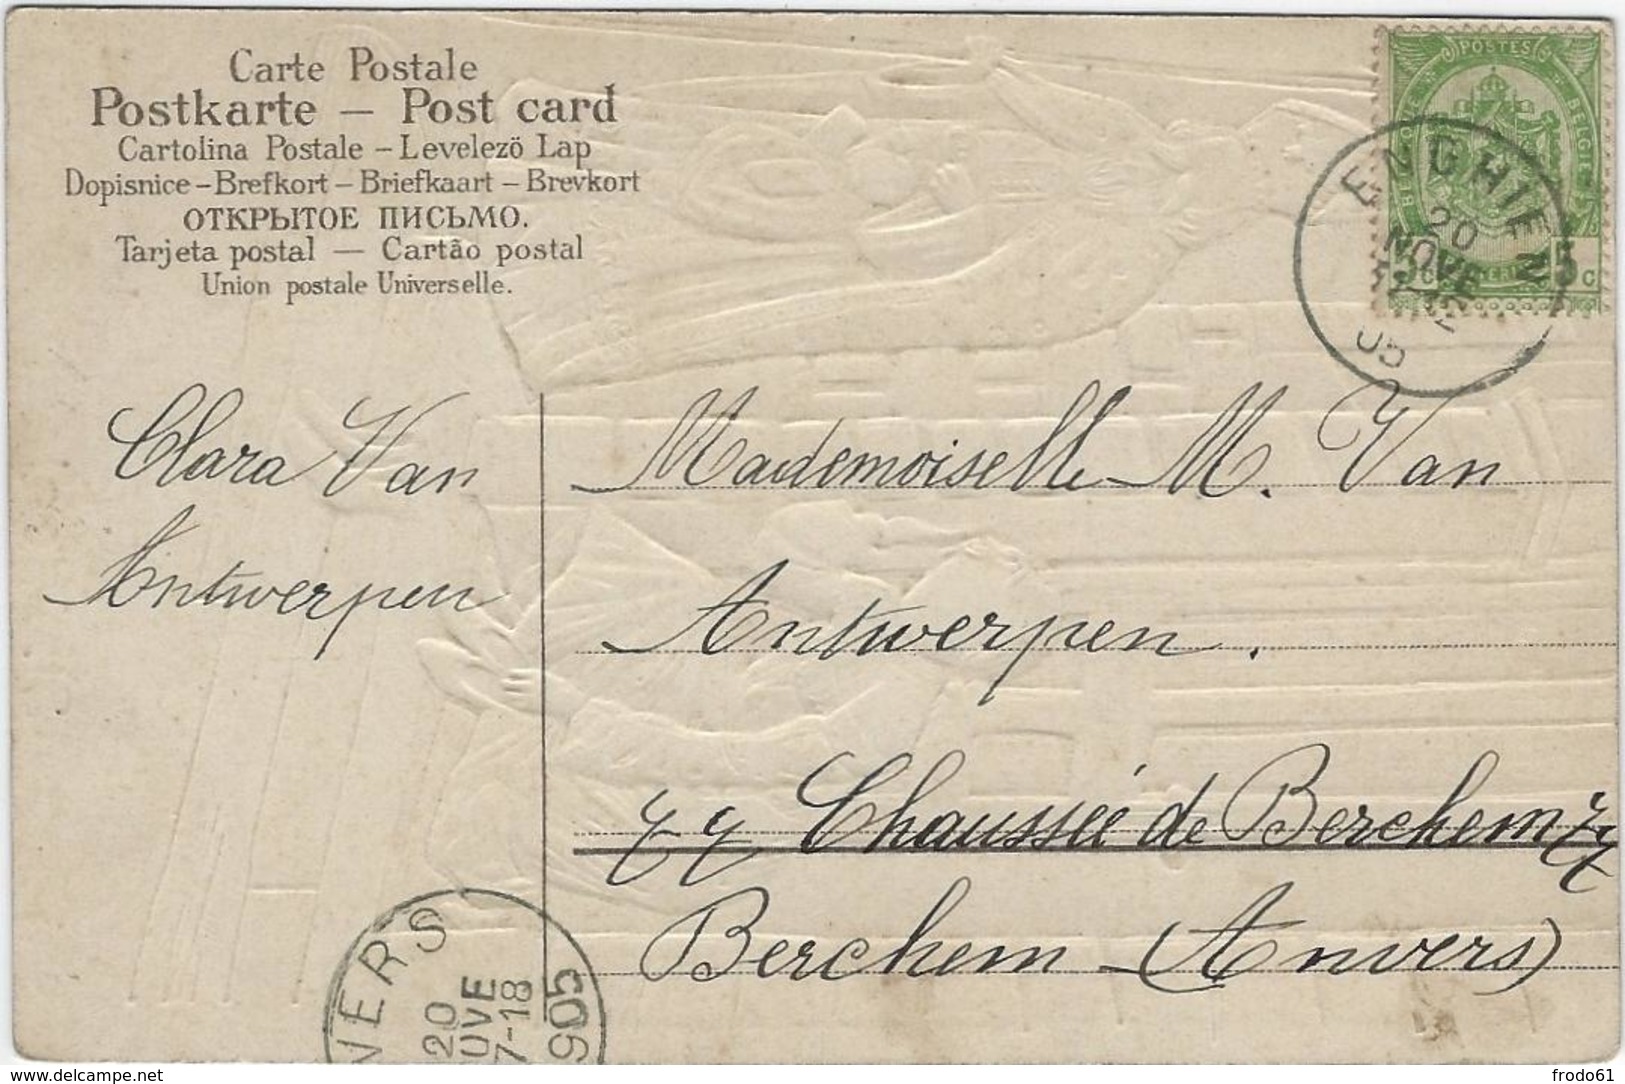 Carte Postale
Postkarte — Post card
Cartolina Postale – Levelezö Lap
Dopisnice – Brefkort – Briefkaart – Brevkort
ОТКРЫТОЕ ПИСЬМО.
Tarjeta postal — Cartão postal
Union postale Universelle.
POSTES
BELGIQUE
BELGIË
ENGHIEN
20
NOVE
05
Clara Van
Antwerpen
Mademoiselle M. Van
Antwerpen.
77 Chaussée de Berchem 77
Berchem (Anvers)
VERS
20
OVE
7-18
905
www.delcampe.net
frodo61